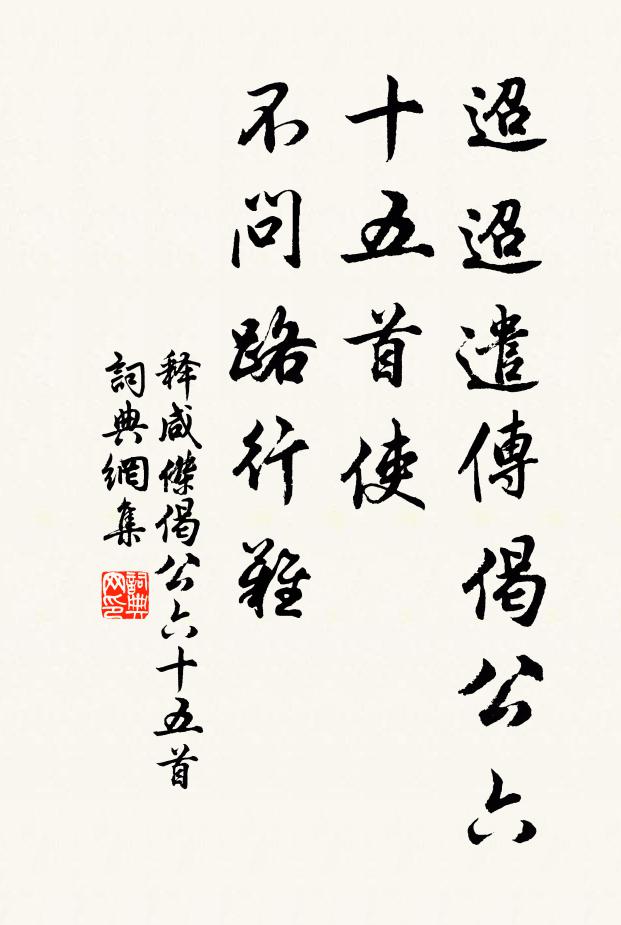 迢迢遣傳偈公六
十五首使
不問路行難
释咸傑偈公六十五首
詞典網集
詞典网印